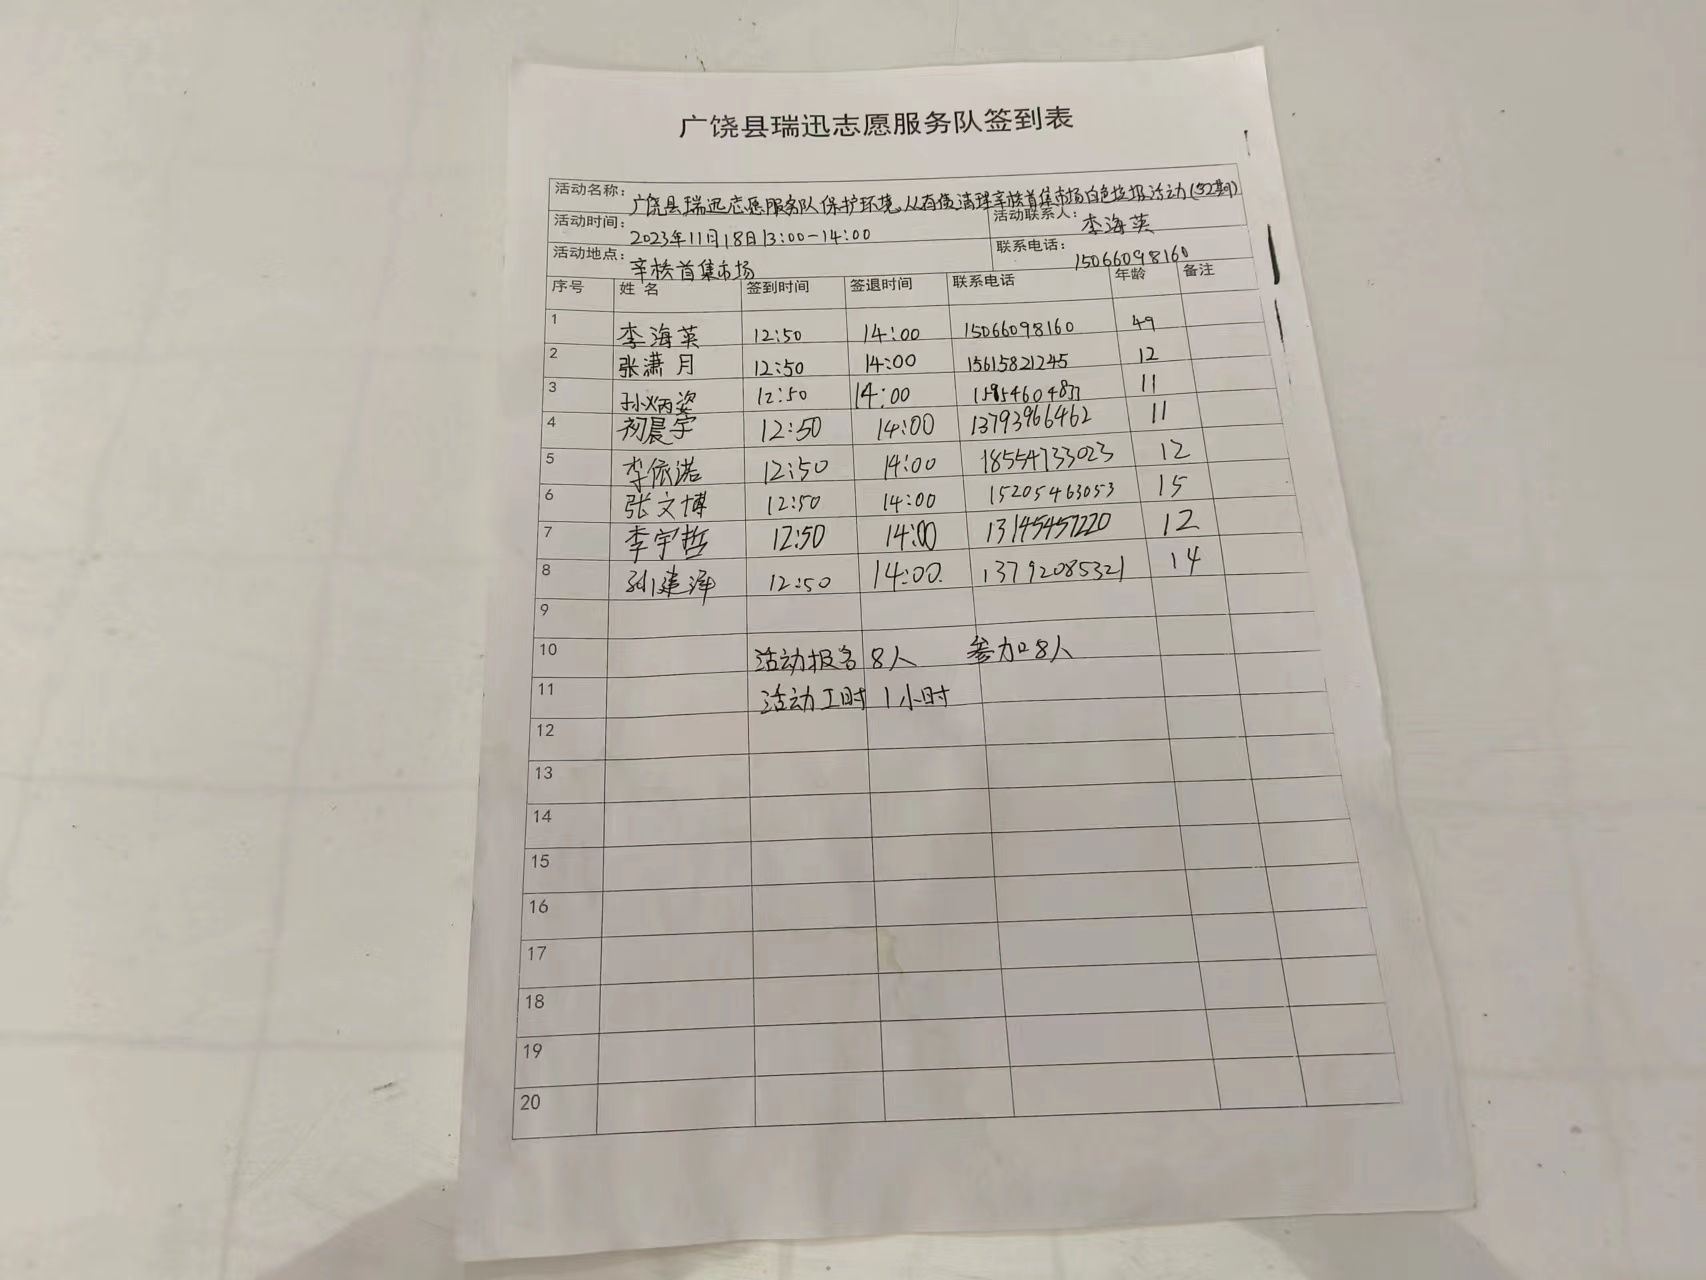 广饶县瑞迅志愿服务队签到表
活动名称: 广饶县瑞迅志愿服务队保护环境,从有我清理辛桥首集市场白色垃圾活动
活动时间: 2023年11月18日13:00-14:00 活动联系人: 李海英
活动地点: 辛桥首集市场 联系电话: 15066098160
序号 姓 名 签到时间 签退时间 联系电话 年龄 备注
1 李海英 12:50 14:00 15066098160 49
2 张潇月 12:50 14:00 15615821245 12
3 孙炳姿 12:50 14:00 11
4 初晨宇 12:50 14:00 13793966462 11
5 李依诺 12:50 14:00 18554733023 12
6 张文博 12:50 14:00 15205463053 15
7 李宇哲 12:50 14:00 13145457220 12
8 孙建泽 12:50 14:00. 13792085321 14
9
10 活动报名 8人 参加8人
11 活动工时 1小时
12
13
14
15
16
17
18
19
20